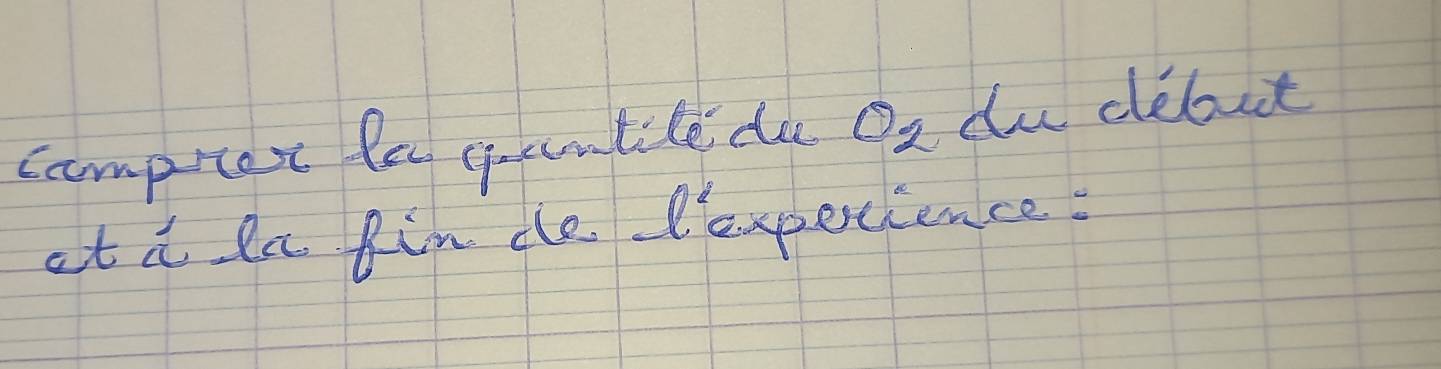 comprer la quantité du O₂ du début
et à la fin de l'experience :